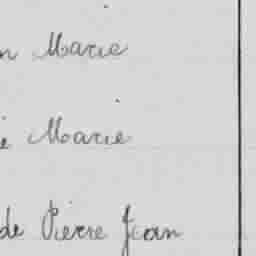 n Marie
é Marie
de Pierre Jean